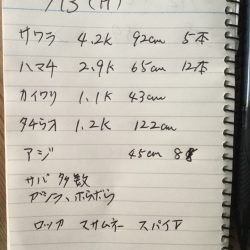 7/3 (月)
サワラ 4.2K 92cm 5本
ハマチ 2.9K 65cm 12本
カイワリ 1.1K 43cm
タチウオ 1.2K 122cm
アジ 45cm 8
サバ 多数
ガシラ、ボラボラ
ロッカ マサムネー スパイV